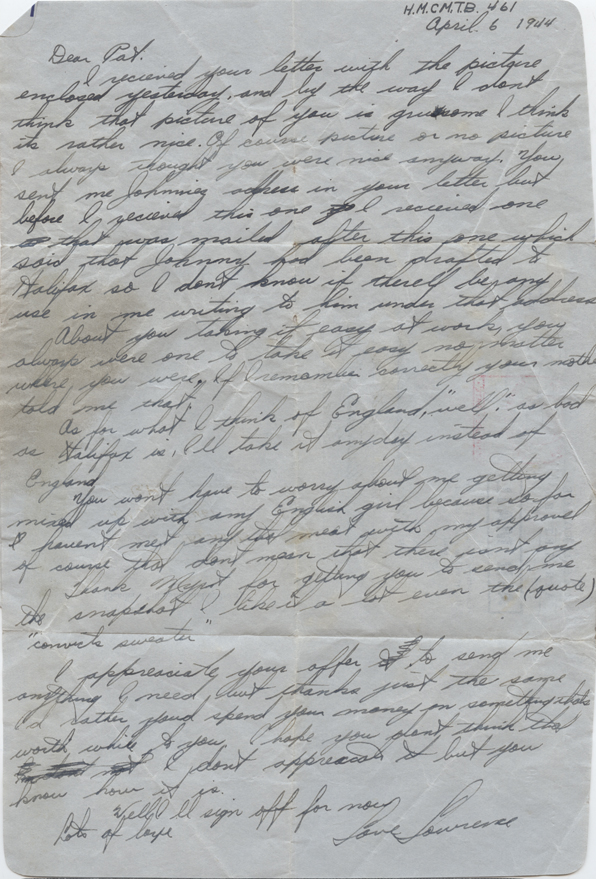 H.M.C.M.T.B. 461
April. 6 1944
Dear Pat.
I recieved your letter with the picture
enclosed yesterday, and by the way I don't
think that picture of you is gruesome I think
its rather nice. Of course picture or no picture
I always thought you were nice anyway. You
sent me Johnnies address in your letter but
before I recieved this one I recieved one
that was mailed after this one which
said that Johnny had been drafted to
Halifax so I don't know if there'll be any
use in me writing to him under that address
About you taking it easy at work, you
always were one to take it easy no matter
where you were. If I remember correctly your mother
told me that.
As for what I think of England, "well", as bad
as Halifax is, I'll take it anyday instead of
England.
You wont have to worry about me getting
mixed up with any English girl because so far
I havent met any that meat with my approval
of course that don't mean that there isn't any
Thank for getting you to send me
the snapshot I like it a lot even the (quote)
"convicts sweater"
I appreaciate your offer to send me
anything I need, but thanks just the same
I'd rather you'd spend your money on something thats
worth while to you, I hope you don't think that
I don't appreaciate it but you
know how it is.
Well I'll sign off for now
Lots of love Love Lawrence